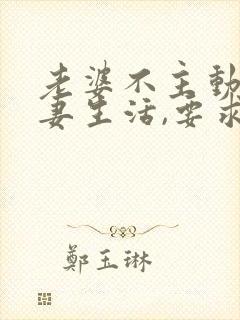 老婆不主動
妻生活,要求
鄭玉琳